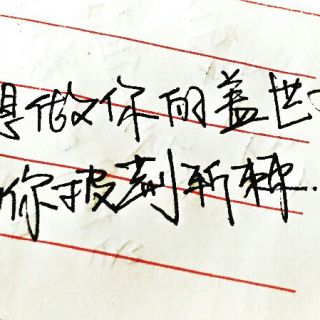 想做你的盖世
你披荆斩棘.